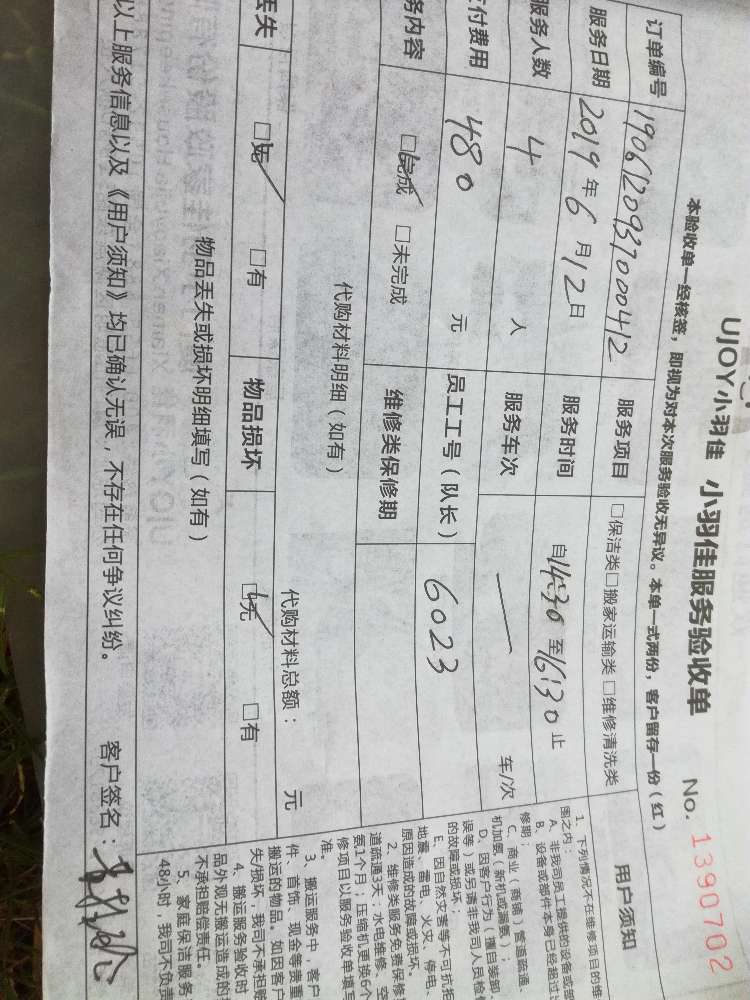 UJOY小羽佳 小羽佳服务验收单 No. 1390702
本验收单一经核签，即视为对本次服务验收无异议。本单一式两份，客户留存一份（红）
订单编号 190612093700412 服务项目 □保洁类□搬家运输类□维修清洗类
服务日期 2019年6月12日 服务时间 自14:30至16:30止
服务人数 4 人 服务车次 — 车/次
付费用 480 元 员工工号（队长） 6023
务内容 □完成 □未完成 维修类保修期
代购材料明细（如有） 代购材料总额： 元
丢失 □无 □有 物品损坏 □无 □有
物品丢失或损坏明细填写（如有）
以上服务信息以及《用户须知》均已确认无误，不存在任何争议纠纷。 客户签名：
用户须知
1、下列情况不在维修项目的维
围之内：
A、非我司员工提供的设备或部
B、设备或部件本身已经超过
修期；
C、商业（商铺）管道疏通、
机加氨（新机或漏氨）；
D、因客户行为（擅自装卸、
误等）或另请非我司人员检修
的故障或损坏；
E、因自然灾害等不可抗拒
地震、雷电、火灾、停电、
原因造成的故障或损坏。
2、维修类服务免费保修
道疏通3天；水电维修、空
氨1个月；压缩机更换6个
修项目以服务验收单填写
准。
3、搬运服务中，客户
件、首饰、现金等贵重
搬运的物品。如因客户
失/损坏，我司不承担赔
4、搬运服务验收时
品外观无搬运造成的
不承担赔偿责任。
5、家庭保洁服务
48小时，我司不负责